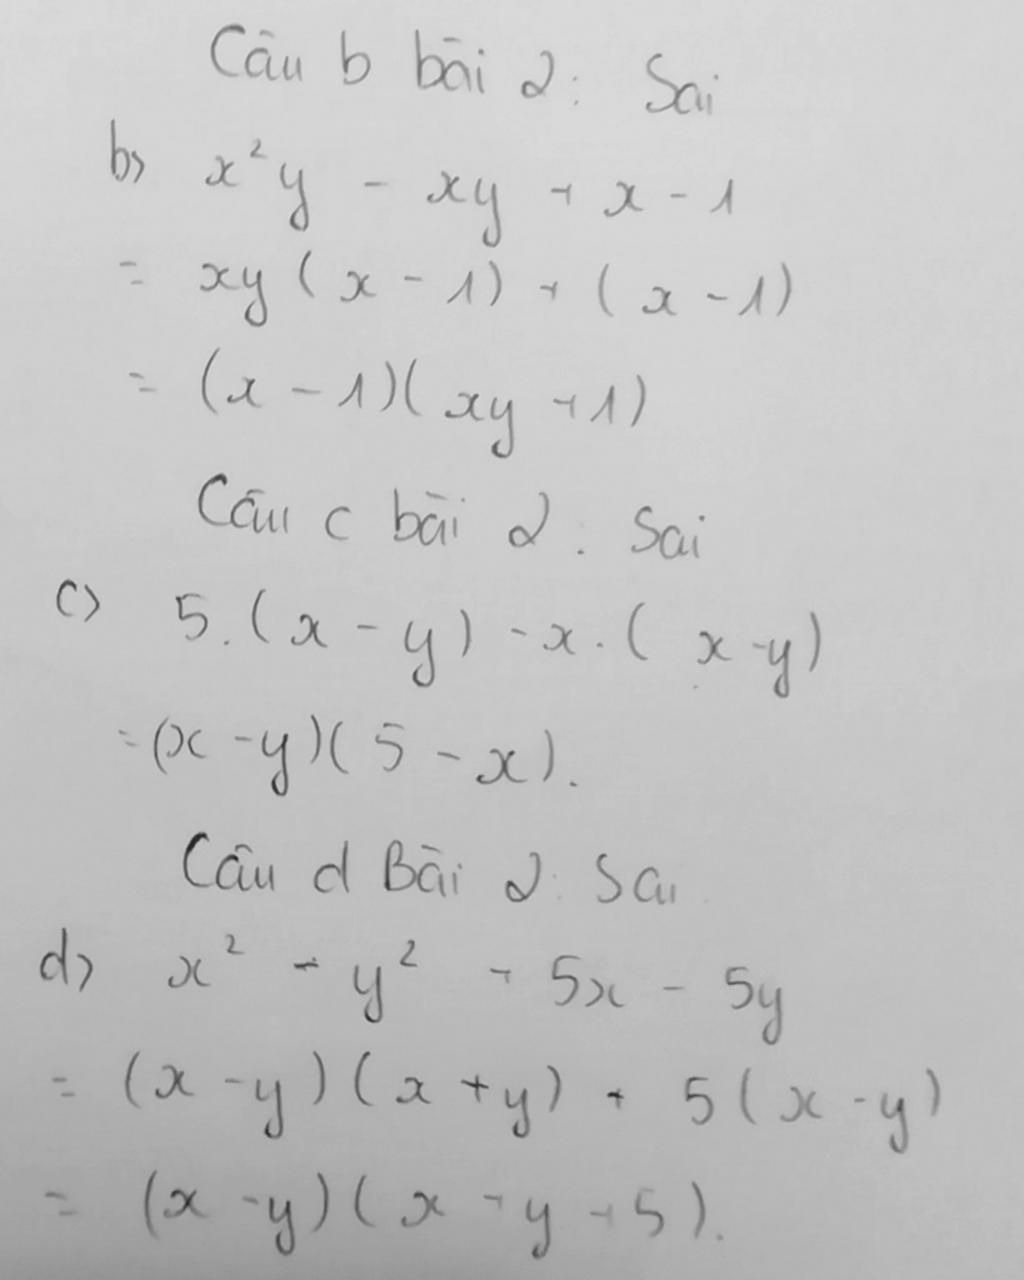 Câu b bài 2: Sai
b) x²y - xy + x - 1
= xy (x - 1) + (x - 1)
= (x - 1)(xy + 1)
Câu c bài 2: Sai
c) 5.(x - y) - x.(x - y)
= (x - y)(5 - x).
Câu d Bài 2: Sai
d) x² - y² + 5x - 5y
= (x - y)(x + y) + 5(x - y)
= (x - y)(x + y + 5).